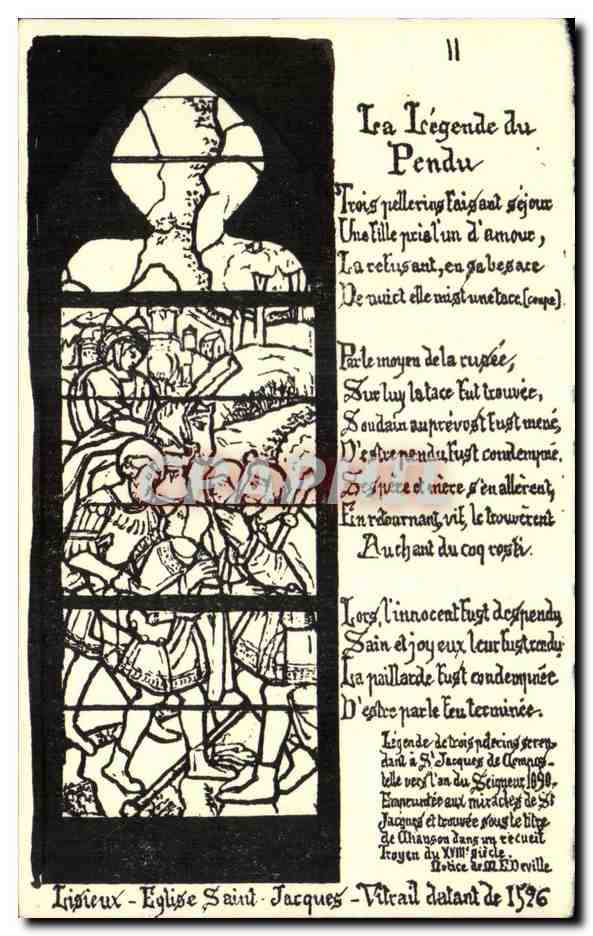 II
La Légende du
Pendu
Trois pellerins faisant séjour
Une fille pria l'un d'amour,
La refusant, en sa besace
De nuict elle mist une tace. (coupe)
Par le moyen de la rusée,
Sur luy la tace fut trouvée,
Soudain au prévost fust mené,
D'estre pendu fust condempné.
Ses père et mère s'en allèrent,
En retournant, vif, le trouvèrent
Au chant du coq rosti.
Lors, l'innocent fust despendu,
Sain et joyeux leur fust rendu
La paillarde fust condempnée
D'estre par le feu terminée.
Légende de trois pèlerins se ren-
dant à St Jacques de Compos-
telle vers l'an du Seigneur 1090.
Empruntée aux miracles de St
Jacques et trouvée sous le titre
de Chanson dans un recueil
troyen du XVIIIe siècle.
Notice de M. E. Deville
Lisieux - Eglise Saint-Jacques - Vitrail datant de 1526